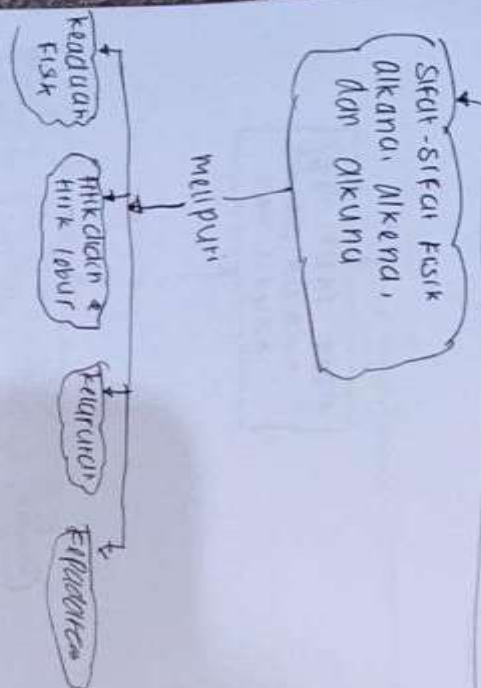 Sifat-sifat Fisik
alkana, alkena,
dan alkuna
melipuri
keadaan
Fisik
titik didih &
titik lebur
kelarutan